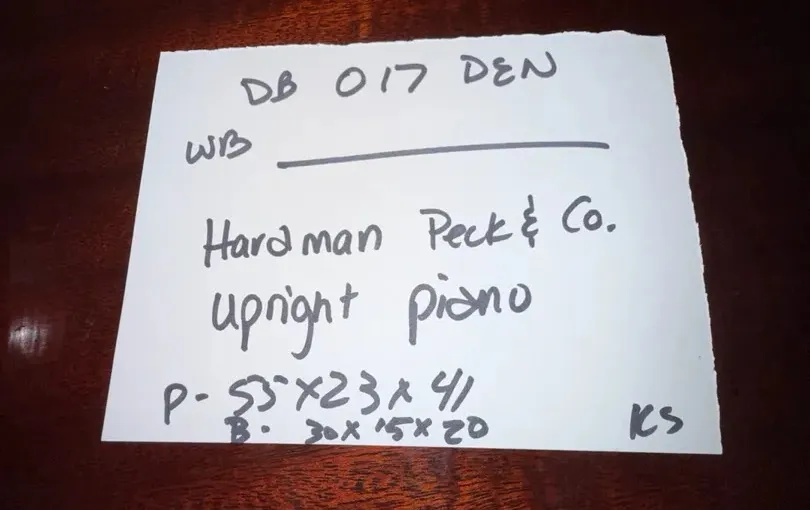 DB 017 DEN
WB
Hardman Peck & Co.
upright piano
P- 55 x 23 x 41
B- 30 x 15 x 20
KS